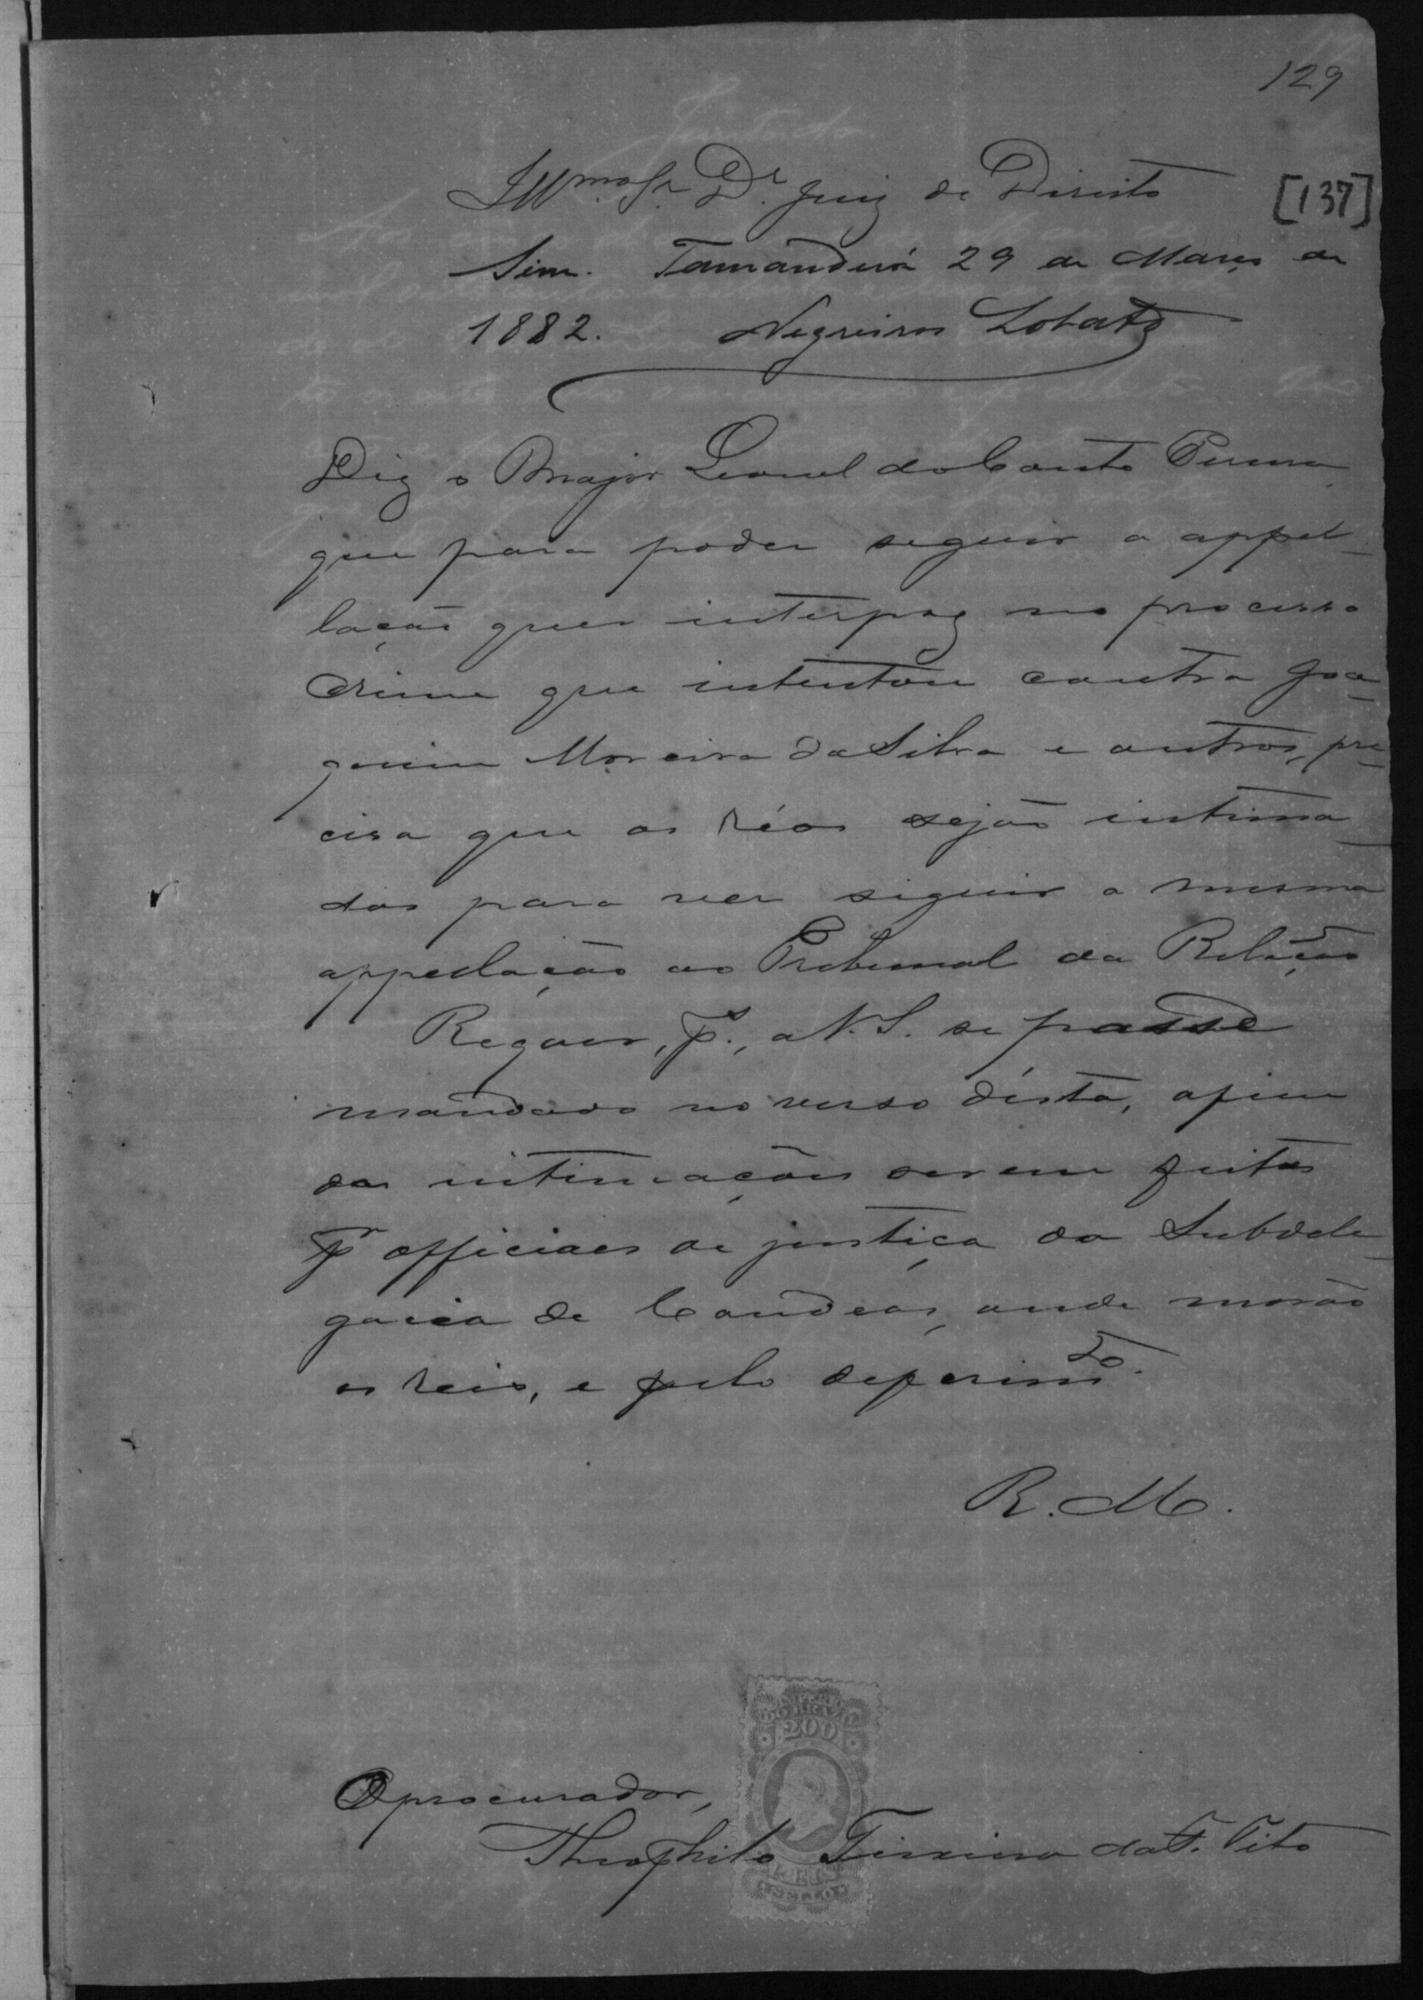 129
Illmo. Sr. Dr. Juiz de Direito
[137]
Sim. Tamanduá 29 de Março de
1882. Negreiros Lobato
Diz o Major Leonel do Couto
que para poder seguir a appel-
lação que interpoz no processo
crime que intentou contra Joa-
quim Moreira da Silva e outros, pre-
cisa que os réos sejão intima-
dos para ver seguir a mesma
appellação ao Tribunal da Relação
Requer, ps., a V. S. se passe
mandado no verso désta, afim
das intimações serem feitas
pr officiaes de justiça da Subdele-
gacia de Candeas, onde morão
os reis, e pelo deferimto.
R. M.
IMPERIO
DO BRAZIL
200
REIS
SELLO
O procurador,
Theophilo Teixeira da F. Vito